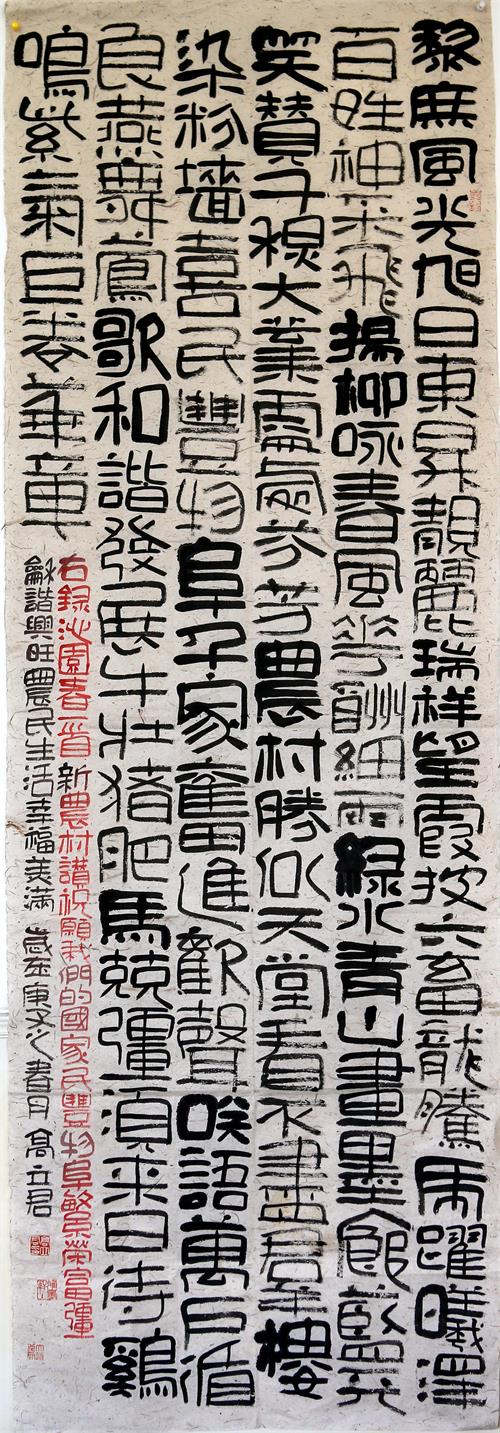 黎庶風光旭日東昇靚麗瑞祥望霞披六畜龍騰虎躍曦澤
百姓神采飛揚柳咏春風花酬細雨綠水青山畫墨藍天
笑贊千大業處處芬芳農村勝似天堂看不盡樓
染粉墻喜民豐物阜千家奮進歡聲咲語萬戶循
良燕舞鶯歌和諧發展牛壯猪肥馬兢彊須來日待鷄
鳴紫氣巨卷華章
右録沁園春一首新農村讚祝願我們的國家民豐物阜繁榮富彊
龢諧興旺農民生活幸福美滿歲在庚子之春月高立君